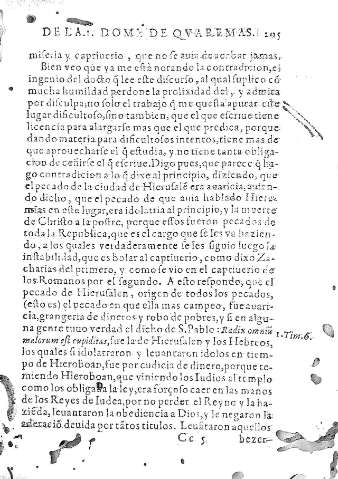 DE LA .I. DOM. DE QVAREMAS. 205
miseria y captiuerio, que no se auia de acabar jamas.
Bien veo que ya me està notando la contradicion, el
ingenio del docto q̃ lee este discurso, al qual suplico cõ
mucha humildad perdone la prolixidad del, y admita
por disculpa, no solo el trabajo q̃ me cuesta apurar este
lugar dificultoso, sino tambien, que el que escriue tiene
licencia para alargarse mas que el que predica, porque
dando materia para dificultosos intentos, tiene mas de
que aprouecharse el q̃ estudia, y no tiene tanta obliga-
cion de ceñirse el q̃ escriue. Digo pues, que parece q̃ ha-
go contradicion a lo q̃ dixe al principio, diziendo, que
el pecado de la ciudad de Hierusalẽ era auaricia, auien-
do dicho, que el pecado de que auia hablado Hiere-
mias en este lugar, era idolatria al principio, y la muerte
de Christo a la postre, porque estos fueron pecados de
toda la Republica, que es el cargo que se les va hazien-
do, a los quales verdaderamente se les siguio luego la
instabilidad, que es bolar al captiuerio, como dixo Za-
charias del primero, y como se vio en el captiuerio de
los Romanos por el segundo. A esto respondo, que el
pecado de Hierusalen, origen de todos los pecados,
(esto es) el pecado en que ella mas campeo, fue auaricia,
grangeria de dineros y robo de pobres, y si en algu-
na gente tuuo verdad el dicho de S. Pablo: Radix omniũ
malorum est cupiditas, fue la de Hierusalen y los Hebreos,
1-Tim. 6.
los quales si idolatraron y leuantaron idolos en tiem-
po de Hieroboan, fue por cudicia de dinero, porque te-
miendo Hieroboan, que viniendo los Iudios al templo
como los obligaua la ley, era forçoso caer en las manos
de los Reyes de Iudea, por no perder el Reyno y la ha-
ziẽda, leuantaron la obediencia a Dios, y le negaron la
adoraciõ deuida por tãtos titulos. Leuãtaron aquellos
Cc 5 bezer-